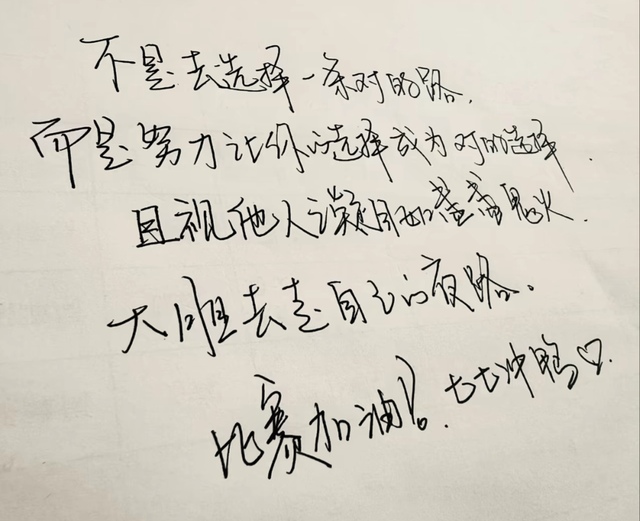 不是去选择一条对的路.
而是努力让你的选择成为对的选择.
且视他人之凝目如盏盏鬼火.
大胆去走自己的夜路.
比赛加油!七七冲鸭♡.